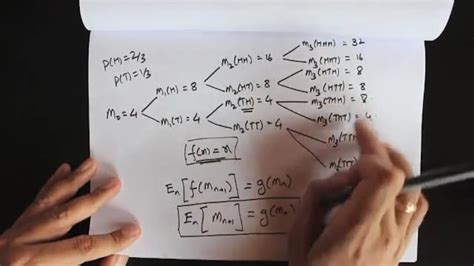 P(H) = 2/3
P(T) = 1/3
M₀ = 4
M₁(H) = 8
M₁(T) = 4
M₂(HH) = 16
M₂(HT) = 8
M₂(TH) = 4
M₂(TT) = 4
M₃(HHH) = 32
M₃(HHT) = 16
M₃(HTH) = 8
M₃(HTT) = 8
M₃(THH) = 8
M₃(THT) = 4
M₃(TT
M₃(TT)
f(x) = x
Eₙ[f(Mₙ₊₁)] = g(Mₙ)
Eₙ[Mₙ₊₁] = g(Mₙ)